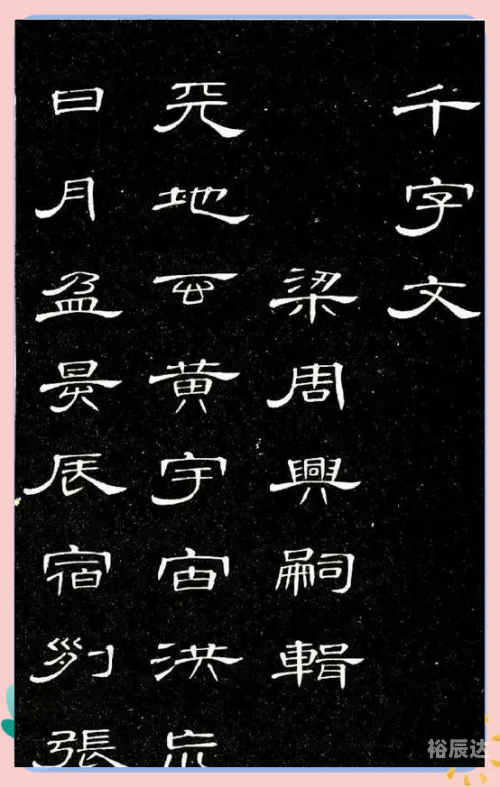 千字文
梁周興嗣輯
天地玄黃宇宙洪荒
日月盈昃辰宿列張
裕辰达